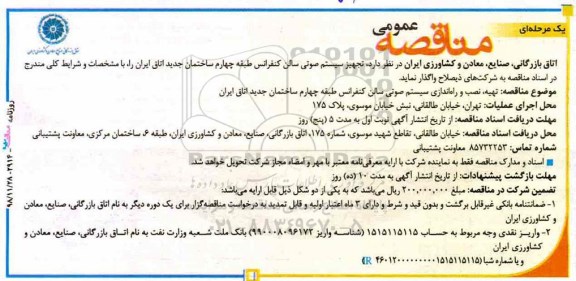 یک مرحله‌ای
مناقصه عمومی
اتاق بازرگانی، صنایع، معادن و کشاورزی ایران در نظر دارد، تجهیز سیستم صوتی سالن کنفرانس طبقه چهارم ساختمان جدید اتاق ایران را، با مشخصات و شرایط کلی مندرج
در اسناد مناقصه به شرکت‌های ذیصلاح واگذار نماید.
موضوع مناقصه: تهیه، نصب و راه‌اندازی سیستم صوتی سالن کنفرانس طبقه چهارم ساختمان جدید اتاق ایران
محل اجرای عملیات: تهران، خیابان طالقانی، نبش خیابان موسوی، پلاک ۱۷۵
مهلت دریافت اسناد مناقصه: از تاریخ انتشار آگهی نوبت اول به مدت ۵ (پنج) روز
محل دریافت اسناد مناقصه: خیابان طالقانی، تقاطع شهید موسوی، شماره ۱۷۵، اتاق بازرگانی، صنایع، معادن و کشاورزی ایران، طبقه ۶، ساختمان مرکزی، معاونت پشتیبانی
شماره تماس: ۸۵۷۳۲۲۵۳ معاونت پشتیبانی
اسناد و مدارک مناقصه فقط به نماینده شرکت با ارایه معرفی‌نامه معتبر با مهر و امضاء مجاز شرکت تحویل خواهد شد.
مهلت بازگشت پیشنهادات: از تاریخ انتشار آگهی به مدت ۱۰ (ده) روز
تضمین شرکت در مناقصه: مبلغ ۲۰۰,۰۰۰,۰۰۰ ریال می‌باشد که به یکی از دو شکل ذیل قابل ارایه می‌باشد:
۱- ضمانتنامه بانکی غیرقابل برگشت و بدون قید و شرط و دارای ۳ ماه اعتبار اولیه و قابل تمدید به درخواست مناقصه‌گزار برای یک دوره دیگر به نام اتاق بازرگانی، صنایع، معادن
و کشاورزی ایران
۲- واریز نقدی وجه مربوطه به حساب ۱۵۱۵۱۱۵۱۱۵ (شناسه واریز ۹۹۰۰۰۸۰۹۶۱۷۳) بانک ملت شعبه وزارت نفت به نام اتاق بازرگانی، صنایع، معادن و
کشاورزی ایران
و یا شماره شبا
روزنامه
۹۸/۱۱/۲۸-۲۹۱۴